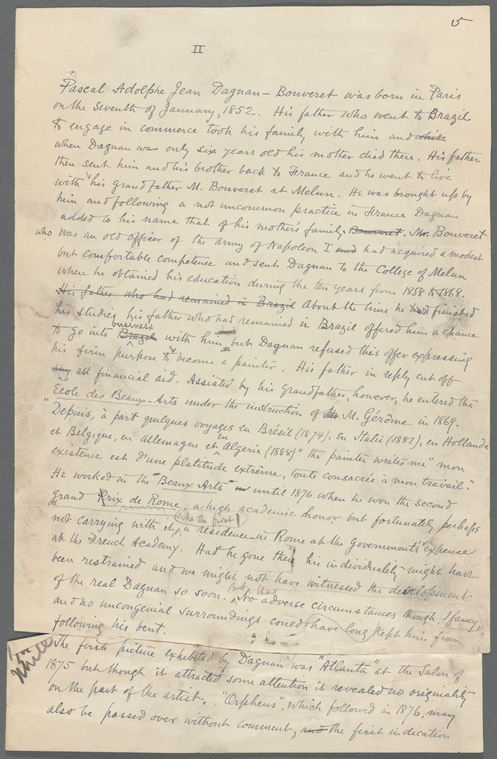 5
II
Pascal Adolphe Jean Dagnan-Bouveret was born in Paris
on the seventh of January, 1852. His father who went to Brazil
to engage in commerce took his family with him and while
when Dagnan was only six years old his mother died there. His father
then sent him and his brother back to France and he went to live
with his grandfather M. Bouveret at Melun. He was brought up by
him and following a not uncommon practice in France Dagnan
added to his name that of his mothers family, Bouveret. Mr. Bouveret
who was an old officer of the army of Napoleon I and had acquired a modest
but comfortable competence and sent Dagnan to the College of Melun
where he obtained his education during the ten years from 1858 to 1868.
His father who had remained in Brazil About the time he had finished
his studies his father who had remained in Brazil offered him a chance
to go into business Brazil with him, but Dagnan refused this offer expressing
his firm purpose to become a painter. His father in reply cut off
any all financial aid. Assisted by his grandfather, however, he entered the
École des Beaux-Arts under the instruction of M. Gérôme in 1869.
"Depuis, à part quelques voyages en Brésil (1874), en Italie (1882), en Hollande
et Belgique, en Allemagne et en Algérie (1888)" the painter writes me "mon
existence est d'une platitude extrême, toute consacrée à mon travail."
He worked in the "Beaux Arts" until 1876 when he won the second
grand Prix de Rome, a high academic honor but fortunately perhaps
not carrying with it, (like the first) a residence in Rome at the Government's expense
at the French Academy. Had he gone there his individuality might have
been restrained and we might not have witnessed the development
of the real Dagnan so soon. But no adverse circumstances though, I fancy,
and no uncongenial surroundings could have long kept him from
following his bent.
The first picture exhibited by Dagnan was "Atlanta" at the Salon of
1875 but though it attracted some attention it revealed no originality
on the part of the artist. "Orpheus", which followed in 1876, may
also be passed over without comment, and the first indication